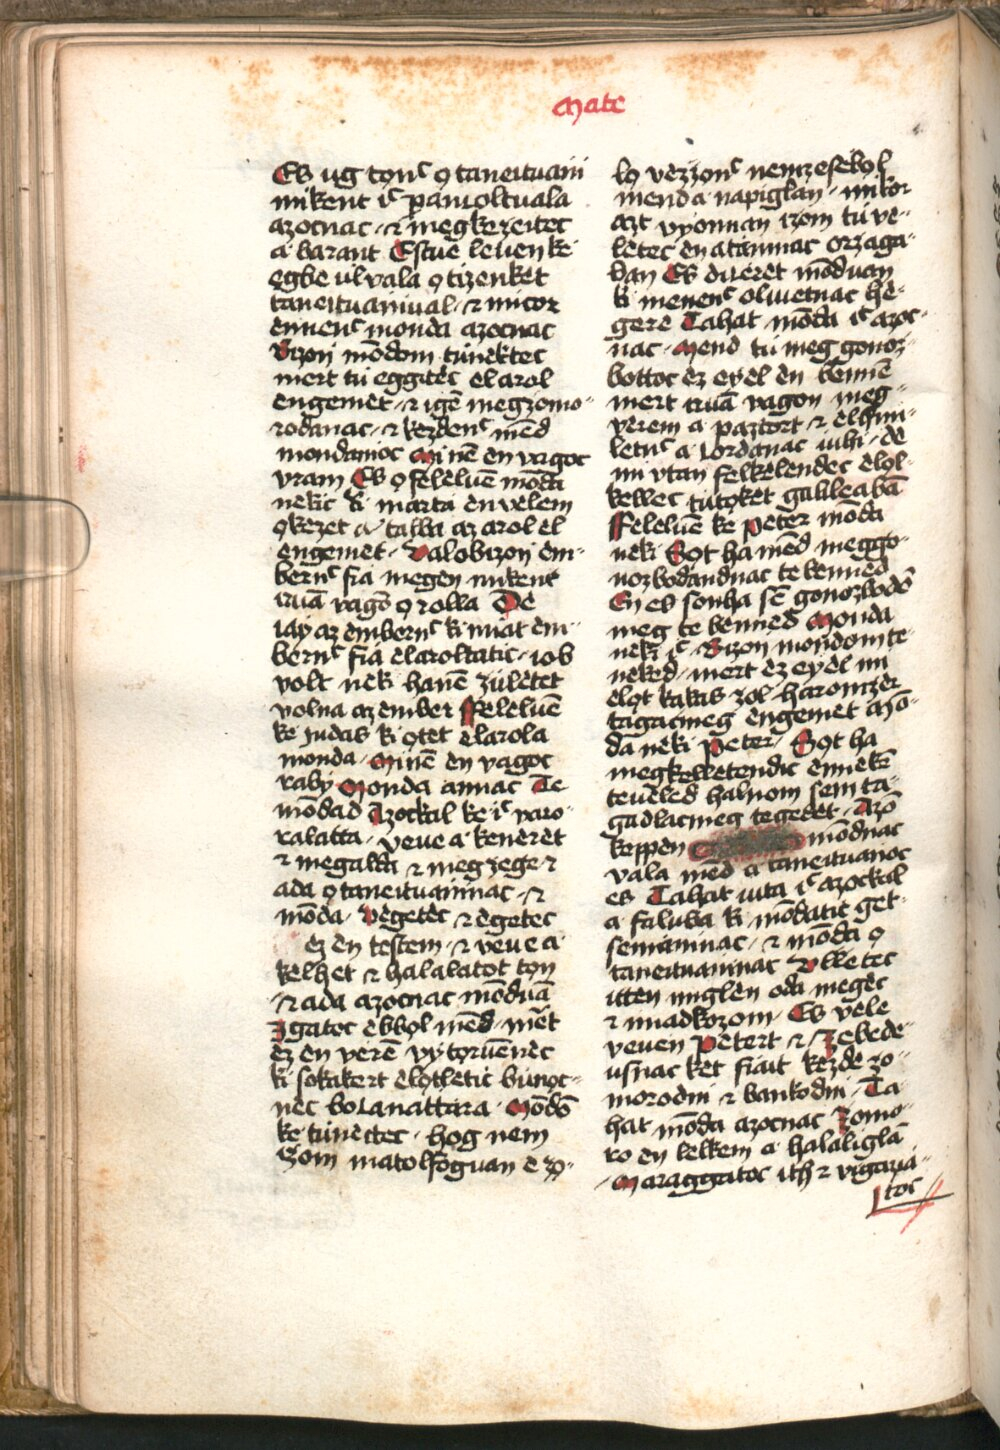 Mate
Es ug tonc o taneituani
mikent ic panioltuala
azocnac · ⁊ megkezeitec
a barant Estuē leuen ke
egbe ul vala o tizenket
taneituaniual · ⁊ micor
ennenc monda azocnac
Bizon mōdom tunektec
mert tu eggitec elarol
engemet · ⁊ igē megzomo-
rodanac · ⁊ kezdenc mēd
mondanioc Minē en vagoc
vram Es o feleluē mōda
nekic ki marta en velem
o kezet a talba az arol el
engemet · Valobizon em-
bernc fia megen mikent
iruā vagō o rolla De
iay az embernc ki miat em-
bernc fia elaroltatic · iob
volt neki hanē zuletet
volna az ember Feleluē
ke judas ki otet elarola
monda · Minē en vagoc
raby Monda annac Te
mōdad Azockal ke ic varo-
ralatta · veue a keneret
⁊ megalda ⁊ megzege ⁊
ada o taneituaninac · ⁊
mōda · Vegetec ⁊ egetec
ez en testem · ⁊ veue a
kelhet ⁊ halalatot ton
⁊ ada azocnac mōduā
Igatoc ebbol mēd · mēt
ez en verē vy toruēnec
ki sokakert elotletic bunoc-
nec bolanattara · Mōdō
ke tunectec · hog nem
izom matolfoguan e zo-
lo vezzonc nemzesebol
menda napiglan · mikor
azt vyonnan izom tu ve-
letec en atāmnac orzaga-
ban Es diceret mōduan
ki menenc oliuetnac he-
gere Tahat mōda ic azoc-
nac · Mend tu meg gonoz-
bottoc ez eyel en bennē
mert iruā vagon meg-
verem a paztort ⁊ elhini-
letnc a iordanac iuhi · de
mi vtan felkelendec elol-
kellec tutoket galileabā
Feleluē ke Peter mōda
neki Sot ha mēd meggo-
nozbodandnac te benned
En es sonha sē gonozbodō
meg te benned Monda
neki ic · Bizon mondom te-
neked · mert ez eyel mi
elot kakas zol · haromzer
tagacmeg engemet azō-
da neki Peter · Sot ha
megkelletendic ennekē
teueled halnom sem ta-
gadlacmeg tegedet · Azō
keppen mōdnac
vala mēd a taneituanioc
es Tahat iuta ic azockal
a faluba ki mōdatic get-
semaninac · ⁊ mōda o
taneituaninac Vlletec
itten miglen oda megec
⁊ imadkozom · Es vele
veuen Petert ⁊ Zebede-
usnac ket fiait kezde zo-
morodni ⁊ bankodni · Ta-
hat mōda azocnac Zomo-
ro en lelkem a halaliglā
Maraggatoc ith ⁊ vigazia-
toc